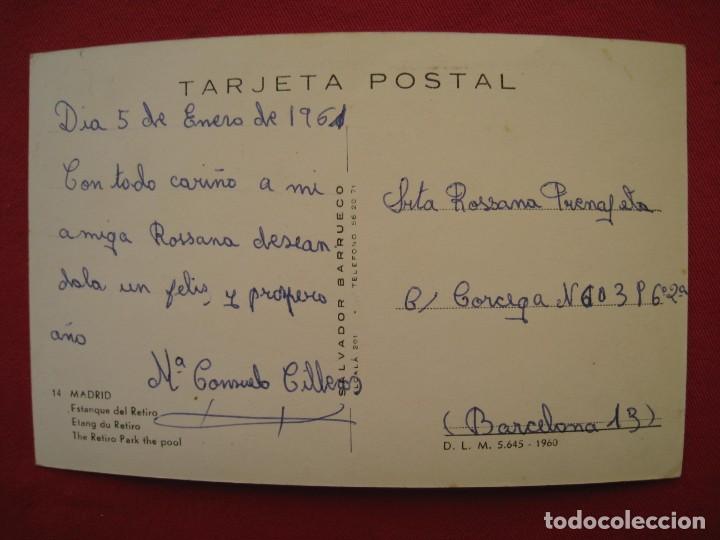 TARJETA POSTAL
Dia 5 de Enero de 1961
Con todo cariño a mi
amiga Rossana desean
dola un felis, y prospero
año
Mª Consuelo
14 MADRID
Estanque del Retiro
Etang du Retiro
The Retiro Park the pool
SALVADOR BARRUECO
ALCALÁ 201 - TELEFONO 56 20 71
Srta Rossana Prenafeta
C/ Corcega 6º 2ª
(Barcelona 13)
D. L. M. 5.645 - 1960
todocoleccion
todocoleccion.net